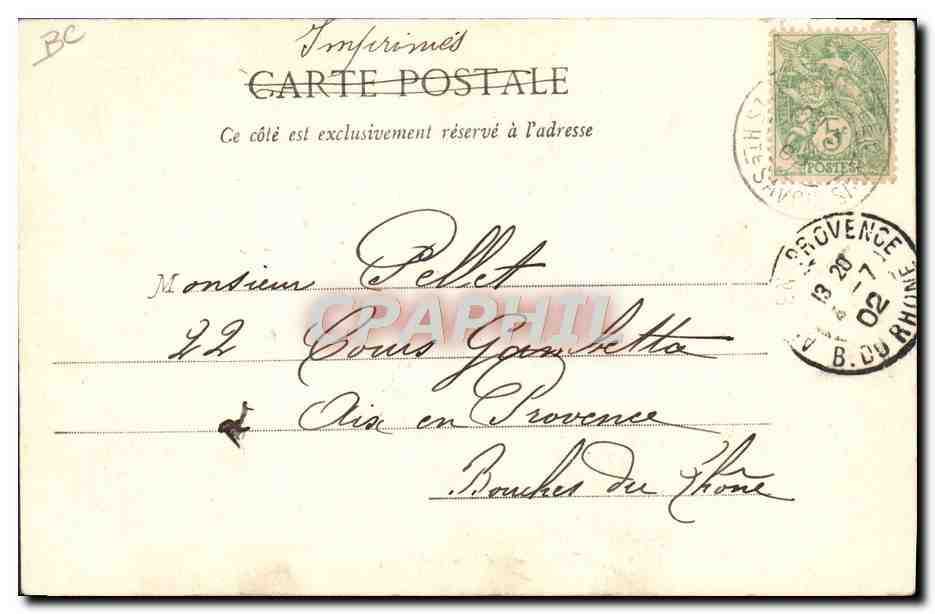 BC
Imprimés
CARTE POSTALE
Ce côté est exclusivement réservé à l'adresse
5c
POSTES
HTE SAVOIE
PROVENCE
13
20
7
02
B. DU RHONE
Monsieur Pellet
CPAPHIL
22 Cours Gambetta
à Aix en Provence
Bouches du Rhône